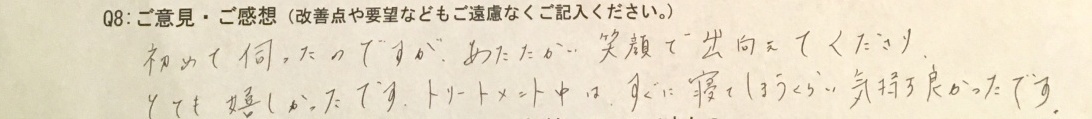 Q8：ご意見・ご感想（改善点や要望などもご遠慮なくご記入ください。）
初めて伺ったのですが、あたたかい笑顔で出向えてくださり、
とても嬉しかったです。トリートメント中は、すぐに寝てしまうくらい気持ち良かったです。